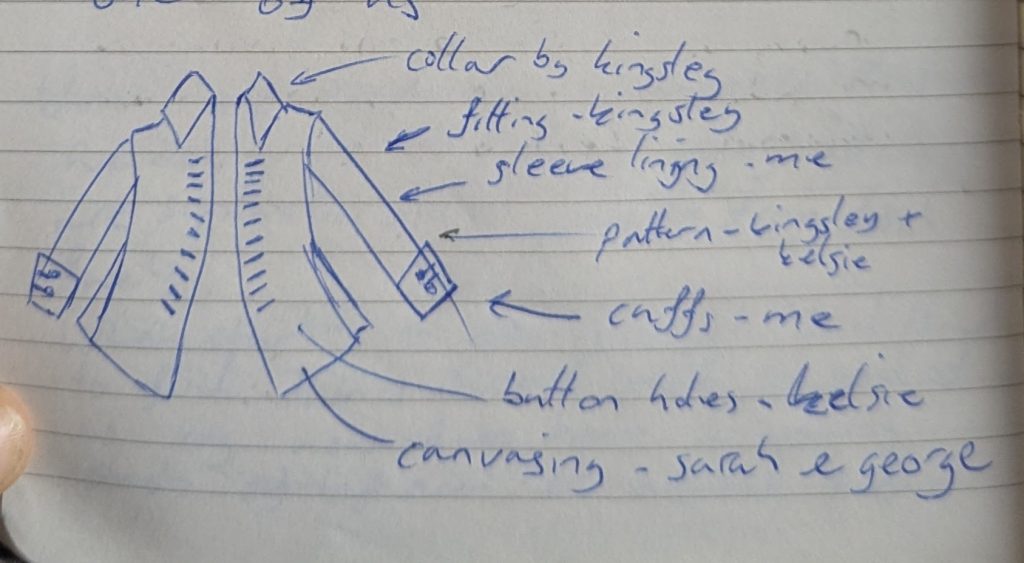 by us
collar by kingsley
fitting - kingsley
sleeve lining - me
pattern - kingsley +
kelsie
cuffs - me
button holes - keelsie
canvasing - sarah e george